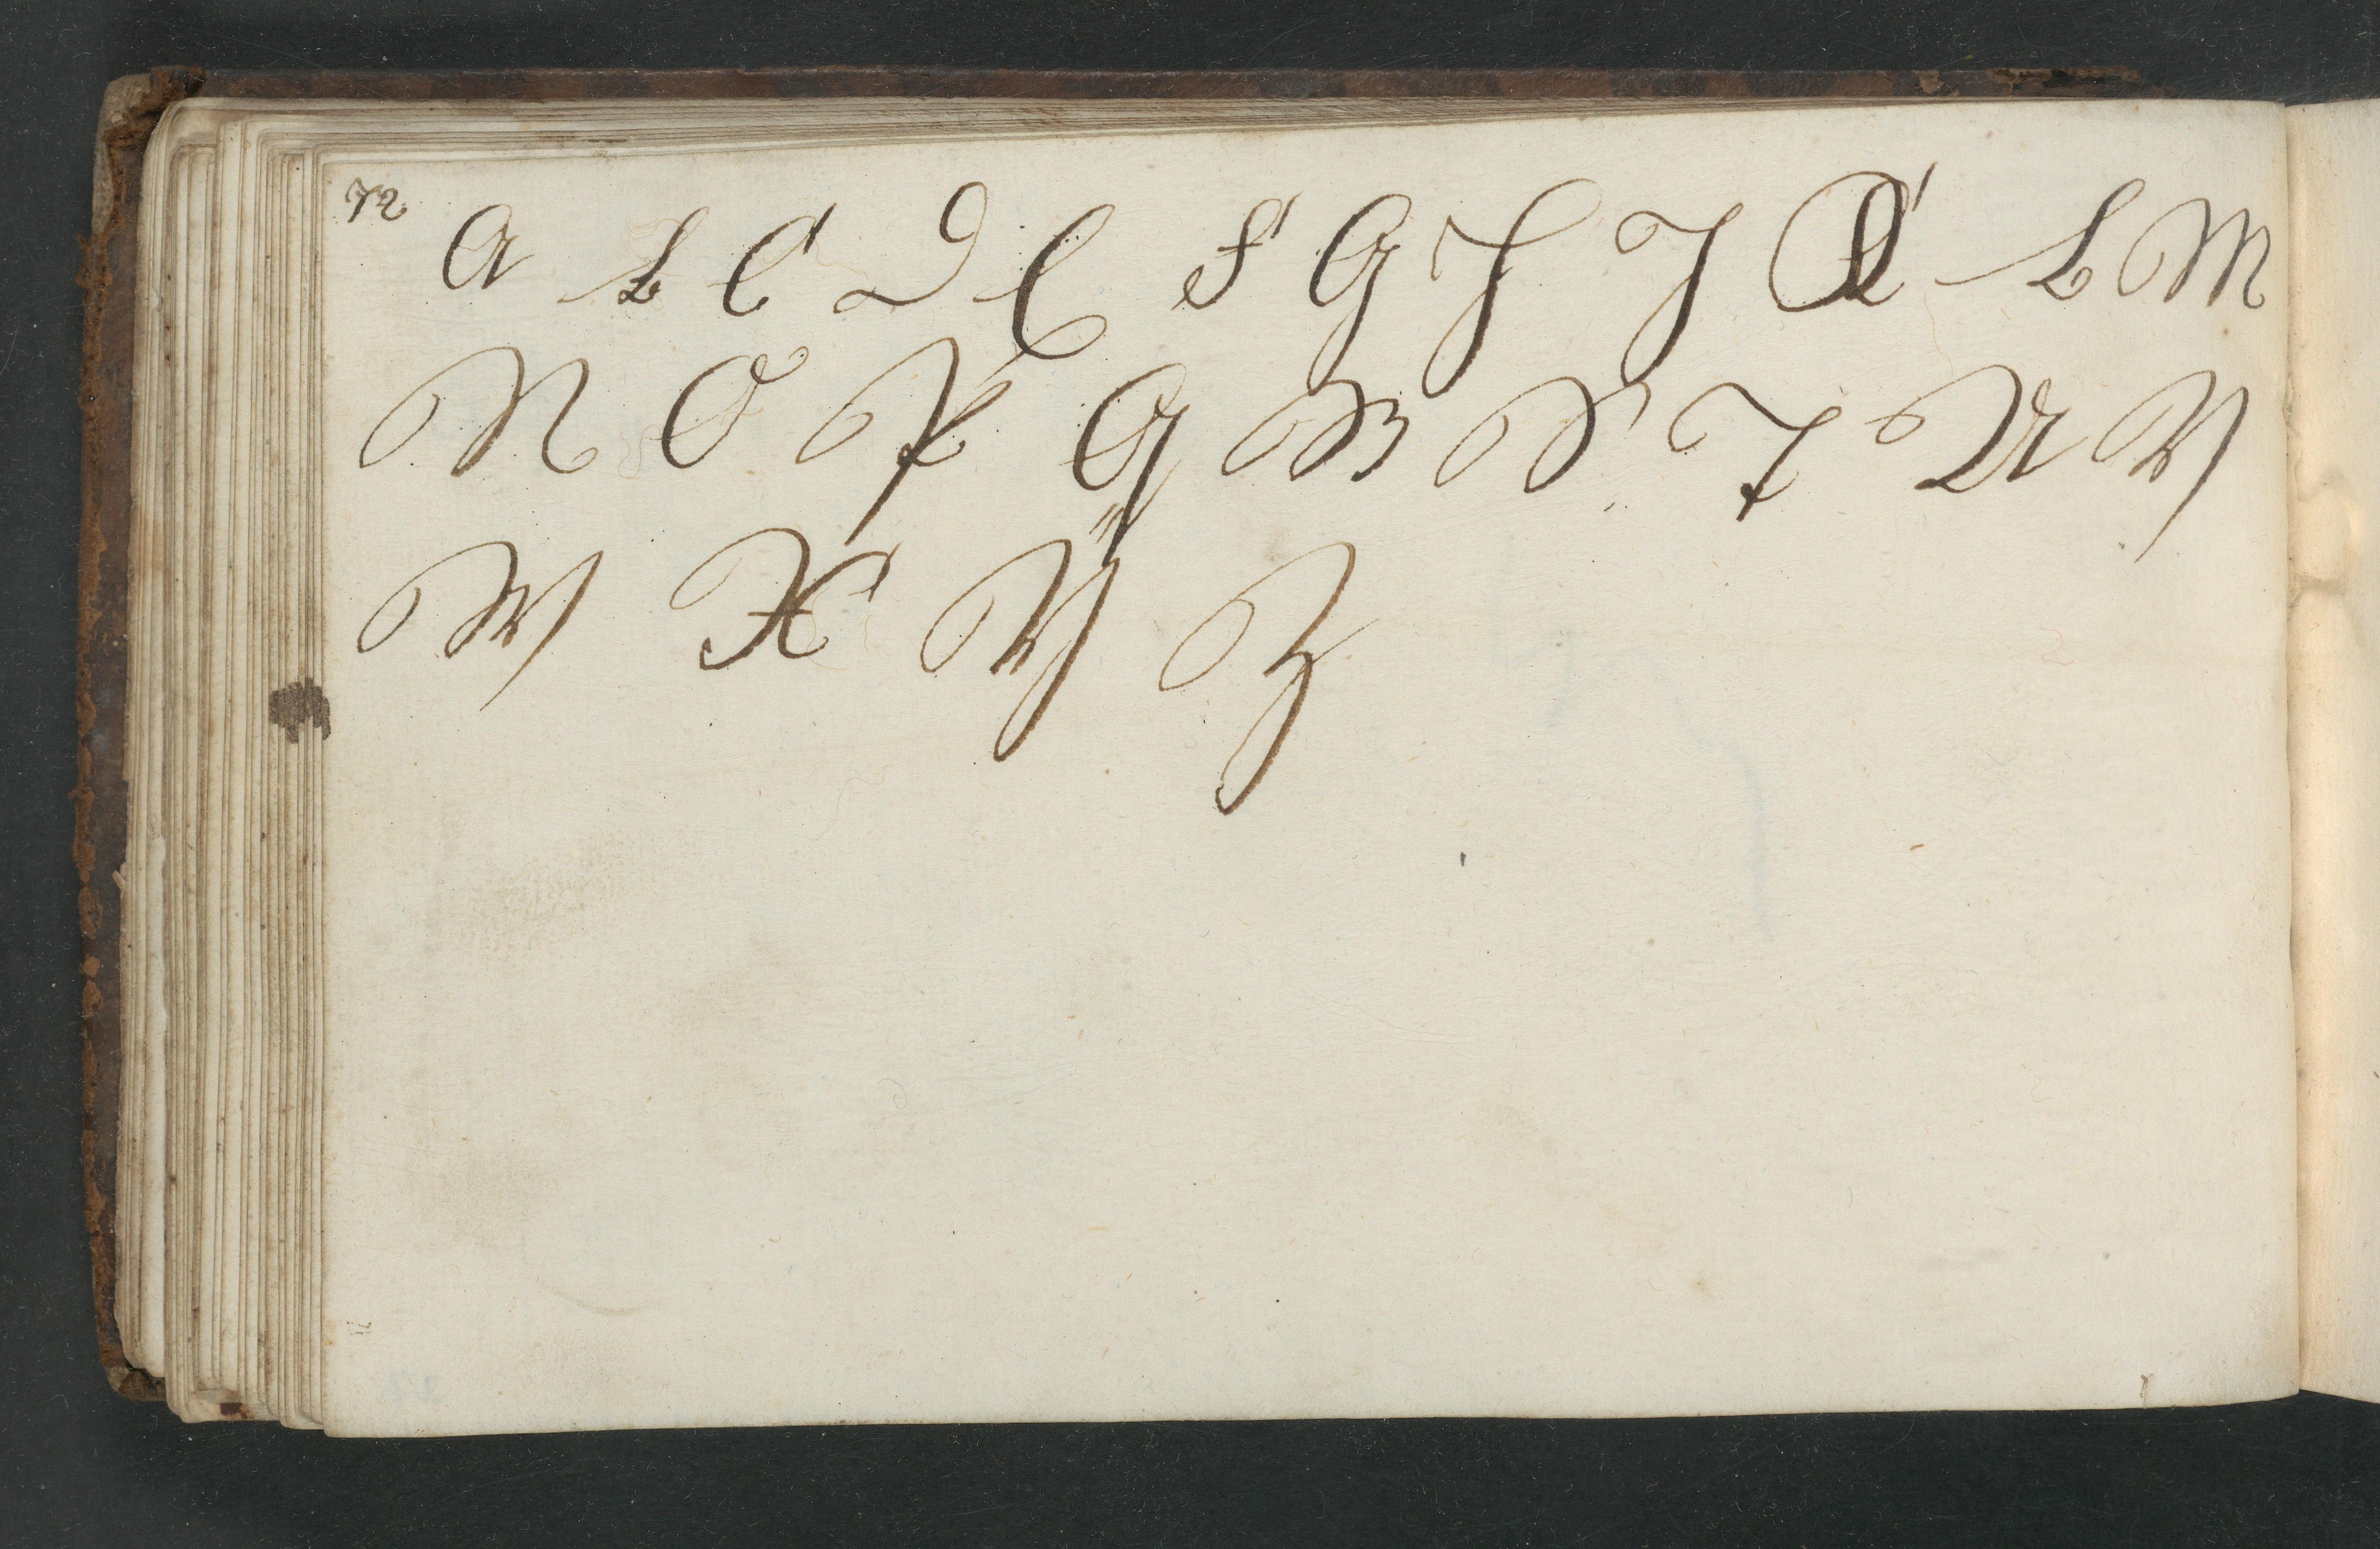 72
A B C D E F G H I K L M
N O P Q R S T U V
W X Y Z